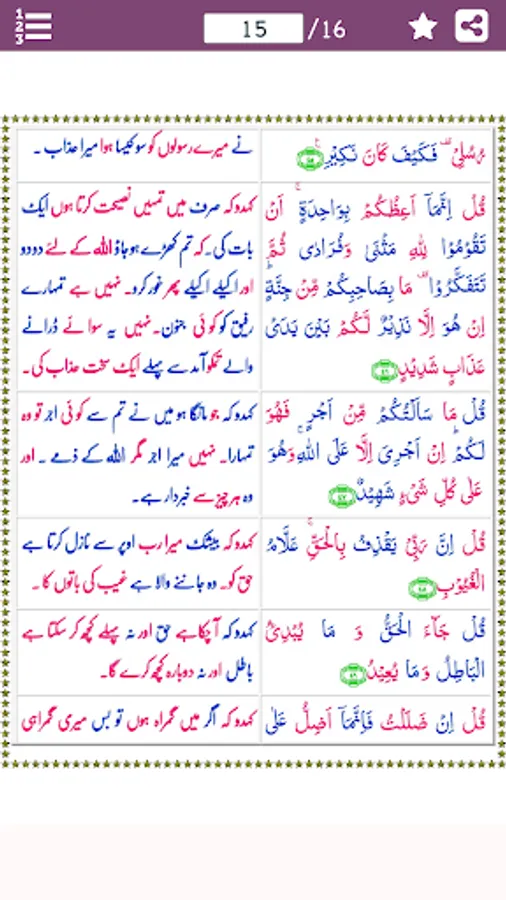 1
2
3
15 /16
رُسُلِیْ ۟ فَکَیْفَ کَانَ نَکِیْرِ ۠ ﴿۴۵﴾
نے میرے رسولوں کو سو کیسا ہوا میرا عذاب ۔
قُلْ اِنَّمَاۤ اَعِظُکُمْ بِوَاحِدَۃٍ ۚ اَنْ
تَقُوْمُوْا لِلّٰہِ مَثْنٰی وَفُرَادٰی ثُمَّ
تَتَفَکَّرُوْا ۟ مَا بِصَاحِبِکُمْ مِّنْ جِنَّۃٍ ؕ
اِنْ ھُوَ اِلَّا نَذِیْرٌ لَّکُمْ بَیْنَ یَدَیْ
عَذَابٍ شَدِیْدٍ ﴿۴۶﴾
کہدو کہ صرف میں تمہیں نصیحت کرتا ہوں ایک
بات کی۔ کہ تم کھڑے ہوجاؤ اللہ کے لئے دو دو
اور اکیلے اکیلے پھر غور کرو۔ نہیں ہے تمہارے
رفیق کو کوئی جنون۔ نہیں یہ سوائے ڈرانے
والے تمکو آمد سے پہلے ایک سخت عذاب کی۔
قُلْ مَا سَاَلْتُکُمْ مِّنْ اَجْرٍ فَھُوَ
لَکُمْ ؕ اِنْ اَجْرِیَ اِلَّا عَلَی اللّٰہِ ۚ وَھُوَ
عَلٰی کُلِّ شَیْءٍ شَھِیْدٌ ﴿۴۷﴾
کہدو کہ جو مانگا ہو میں نے تم سے کوئی اجر تو وہ
تمہارا۔ نہیں میرا اجر مگر اللہ کے ذمے ۔ اور
وہ ہر چیز سے خبردار ہے۔
قُلْ اِنَّ رَبِّیْ یَقْذِفُ بِالْحَقِّ ۚ عَلَّامُ
الْغُیُوْبِ ﴿۴۸﴾
کہدو کہ بیشک میرا رب اوپر سے نازل کرتا ہے
حق کو۔ وہ جاننے والا ہے غیب کی باتوں کا ۔
قُلْ جَآءَ الْحَقُّ وَ مَا یُبْدِئُ
الْبَاطِلُ وَمَا یُعِیْدُ ﴿۴۹﴾
کہدو کہ آچکا ہے حق اور نہ پہلے کچھ کر سکتا ہے
باطل اور نہ دوبارہ کچھ کرے گا۔
قُلْ اِنْ ضَلَلْتُ فَاِنَّمَاۤ اَضِلُّ عَلٰی
کہدو کہ اگر میں گمراہ ہوں تو بس میری گمراہی